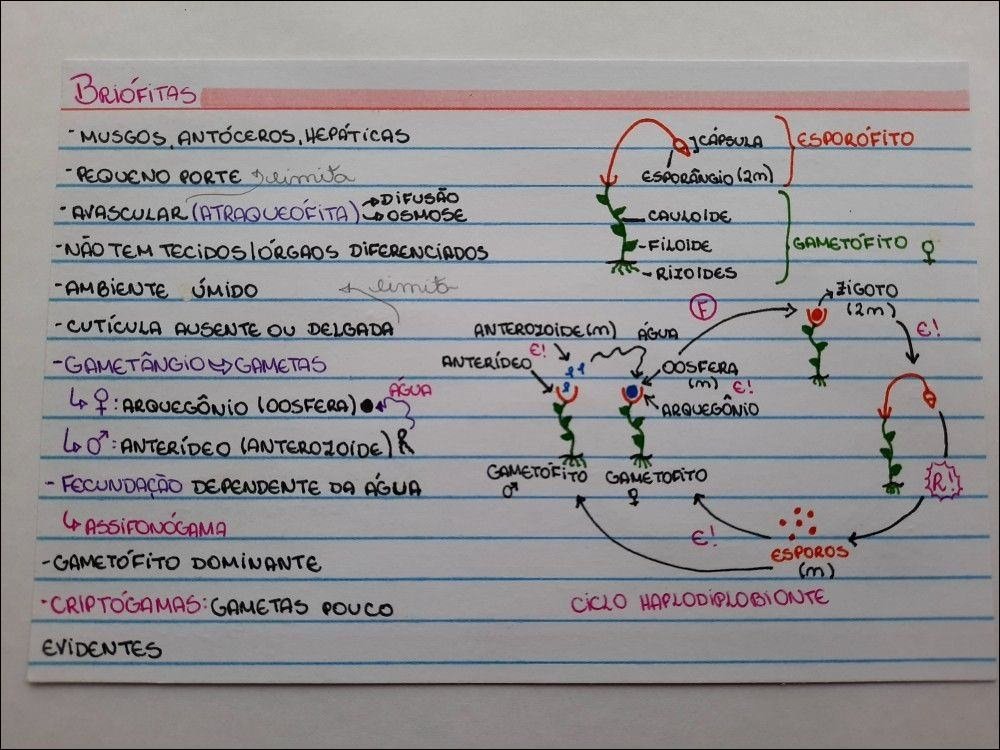 BRIÓFITAS
- MUSGOS, ANTÓCEROS, HEPÁTICAS
- PEQUENO PORTE → limita
- AVASCULAR (ATRAQUEÓFITA) → DIFUSÃO
→ OSMOSE
- NÃO TEM TECIDOS/ÓRGAOS DIFERENCIADOS
- AMBIENTE ÚMIDO ← limita
- CUTÍCULA AUSENTE OU DELGADA
- GAMETÂNGIO → GAMETAS
↳ ♀: ARQUEGÔNIO (OOSFERA) ÁGUA
↳ ♂: ANTERÍDEO (ANTEROZOIDE)
- FECUNDAÇÃO DEPENDENTE DA ÁGUA
↳ ASSIFONÓGAMA
- GAMETÓFITO DOMINANTE
- CRIPTÓGAMAS: GAMETAS POUCO
EVIDENTES
CÁPSULA
ESPORÂNGIO (2m)
ESPORÓFITO
CAULOIDE
- FILOIDE
- RIZOIDES
GAMETÓFITO ♀
ANTEROZOIDE (m)
ÁGUA
F
ZIGOTO
(2m)
E!
E!
ANTERÍDEO
OOSFERA
(m) E!
ARQUEGÔNIO
GAMETOFITO
♂
GAMETOFITO
♀
R!
E!
ESPOROS
(m)
CICLO HAPLODIPLOBIONTE